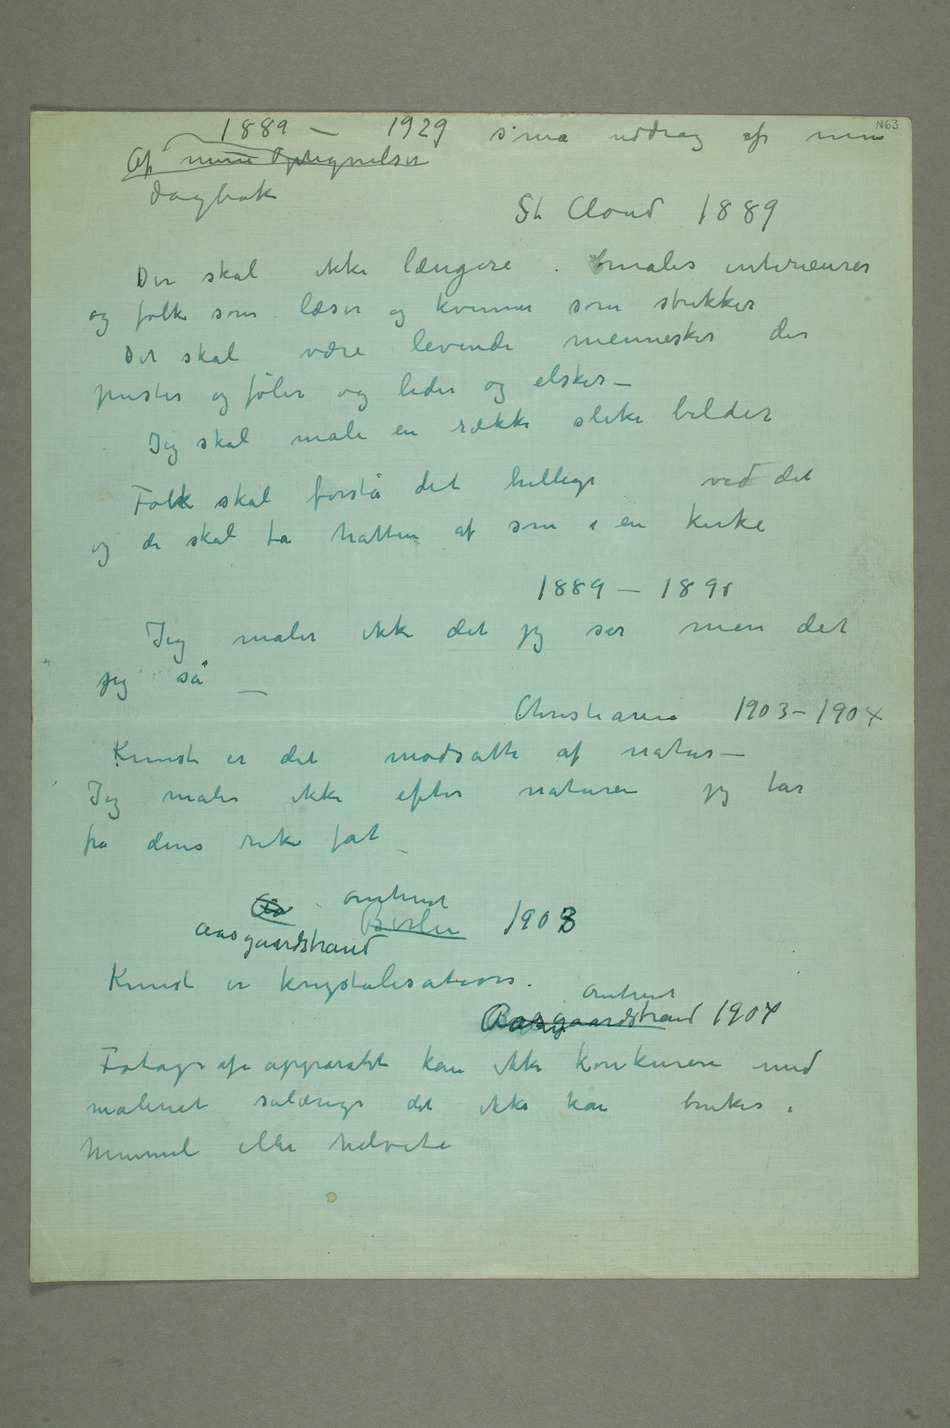 N63
1889 — 1929 små uddrag af min
Af mine Optegnelser
dagbok
St Cloud 1889
Der skal ikke længere males interieurer
og folk som læser og kvinner som strikker
Det skal være levende mennesker der
puster og føler og lider og elsker —
Jeg skal male en række slike bilder
Folk skal forstå det hellige ved det
og de skal ta hatten af som i en kirke
1889 — 1890
Jeg maler ikke det jeg ser men det
jeg så —
Christiania 1903 – 1904
Kunst er det modsatte af natur —
Jeg maler ikke efter naturen jeg tar
fra dens rike fat
omtrent
Aasgaardstrand Berlin 1908
Kunst er krystalisation.
omtrent
Aasgaardstrand 1904
Fotografiapparatet kan ikke konkurere med
maleriet sålænge det ikke kan brukes i
himmel eller helvete